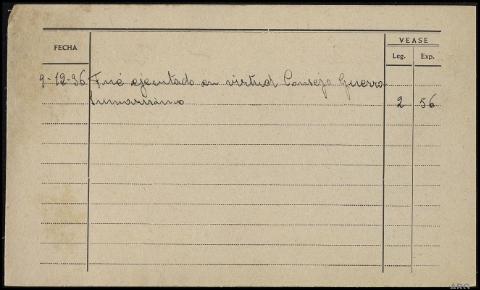 FECHA
VEASE
Leg. Exp.
9-12-36 Fué ejecutado en virtud Consejo Guerra
Sumarísimo 2 56